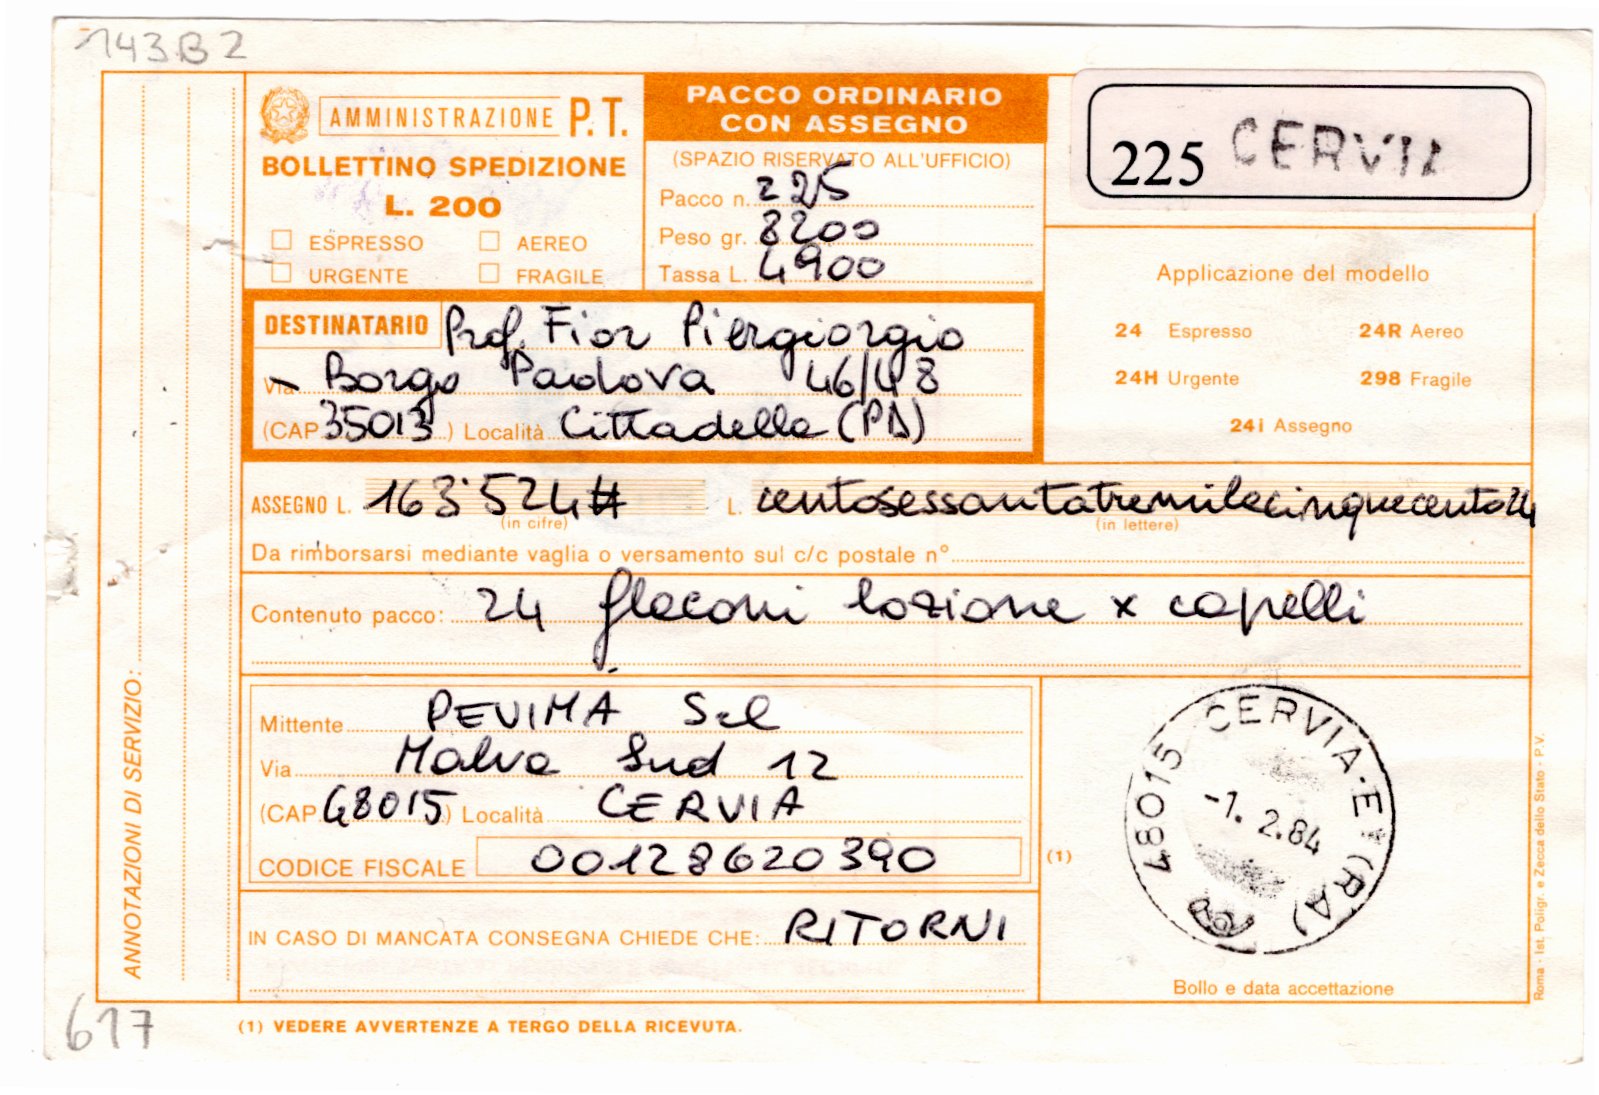 143B2
AMMINISTRAZIONE P.T.
BOLLETTINO SPEDIZIONE
L. 200
ESPRESSO AEREO
URGENTE FRAGILE
PACCO ORDINARIO
CON ASSEGNO
(SPAZIO RISERVATO ALL'UFFICIO)
Pacco n. 225
Peso gr. 8200
Tassa L. 4900
225 CERVIA
Applicazione del modello
24 Espresso 24R Aereo
24H Urgente 298 Fragile
24i Assegno
DESTINATARIO Prof. Fior Piergiorgio
Via Borgo Padova 46/48
(CAP 35013) Località Cittadella (PD)
ASSEGNO L. 163'524# L. centosessantatremilacinquecento24
(in cifre) (in lettere)
Da rimborsarsi mediante vaglia o versamento sul c/c postale n°
Contenuto pacco: 24 flaconi lozione x capelli
Mittente PEVIMA Srl
Via Malva Sud 12
(CAP 48015) Località CERVIA
CODICE FISCALE 00128620390
(1)
48015 CERVIA·E (RA)
-1. 2.84
IN CASO DI MANCATA CONSEGNA CHIEDE CHE: RITORNI
Bollo e data accettazione
ANNOTAZIONI DI SERVIZIO:
Roma - Ist. Poligr. e Zecca dello Stato - P.V.
617
(1) VEDERE AVVERTENZE A TERGO DELLA RICEVUTA.